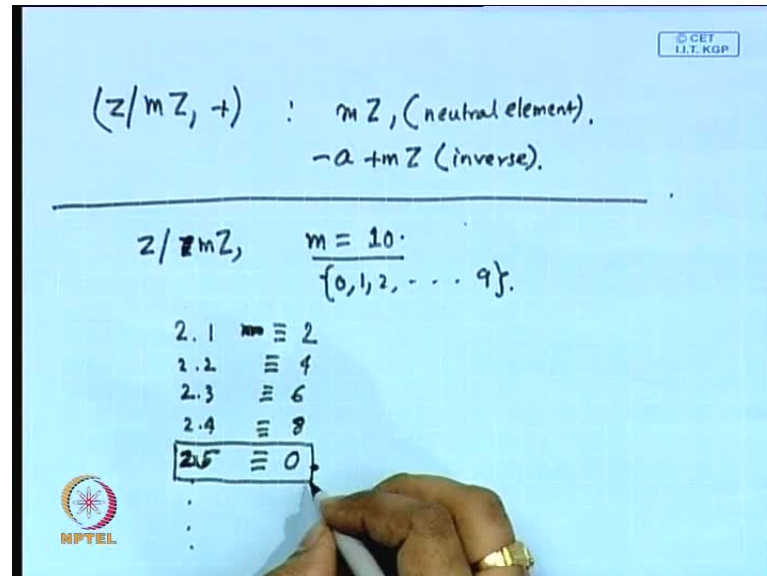 © CET
I.I.T. KGP
(Z/mZ, +) : mZ, (neutral element).
-a +mZ (inverse).
Z/mZ, m = 10.
{0,1,2, - - - 9}.
2.1 ≡ 2
2.2 ≡ 4
2.3 ≡ 6
2.4 ≡ 8
2.5 ≡ 0
NPTEL